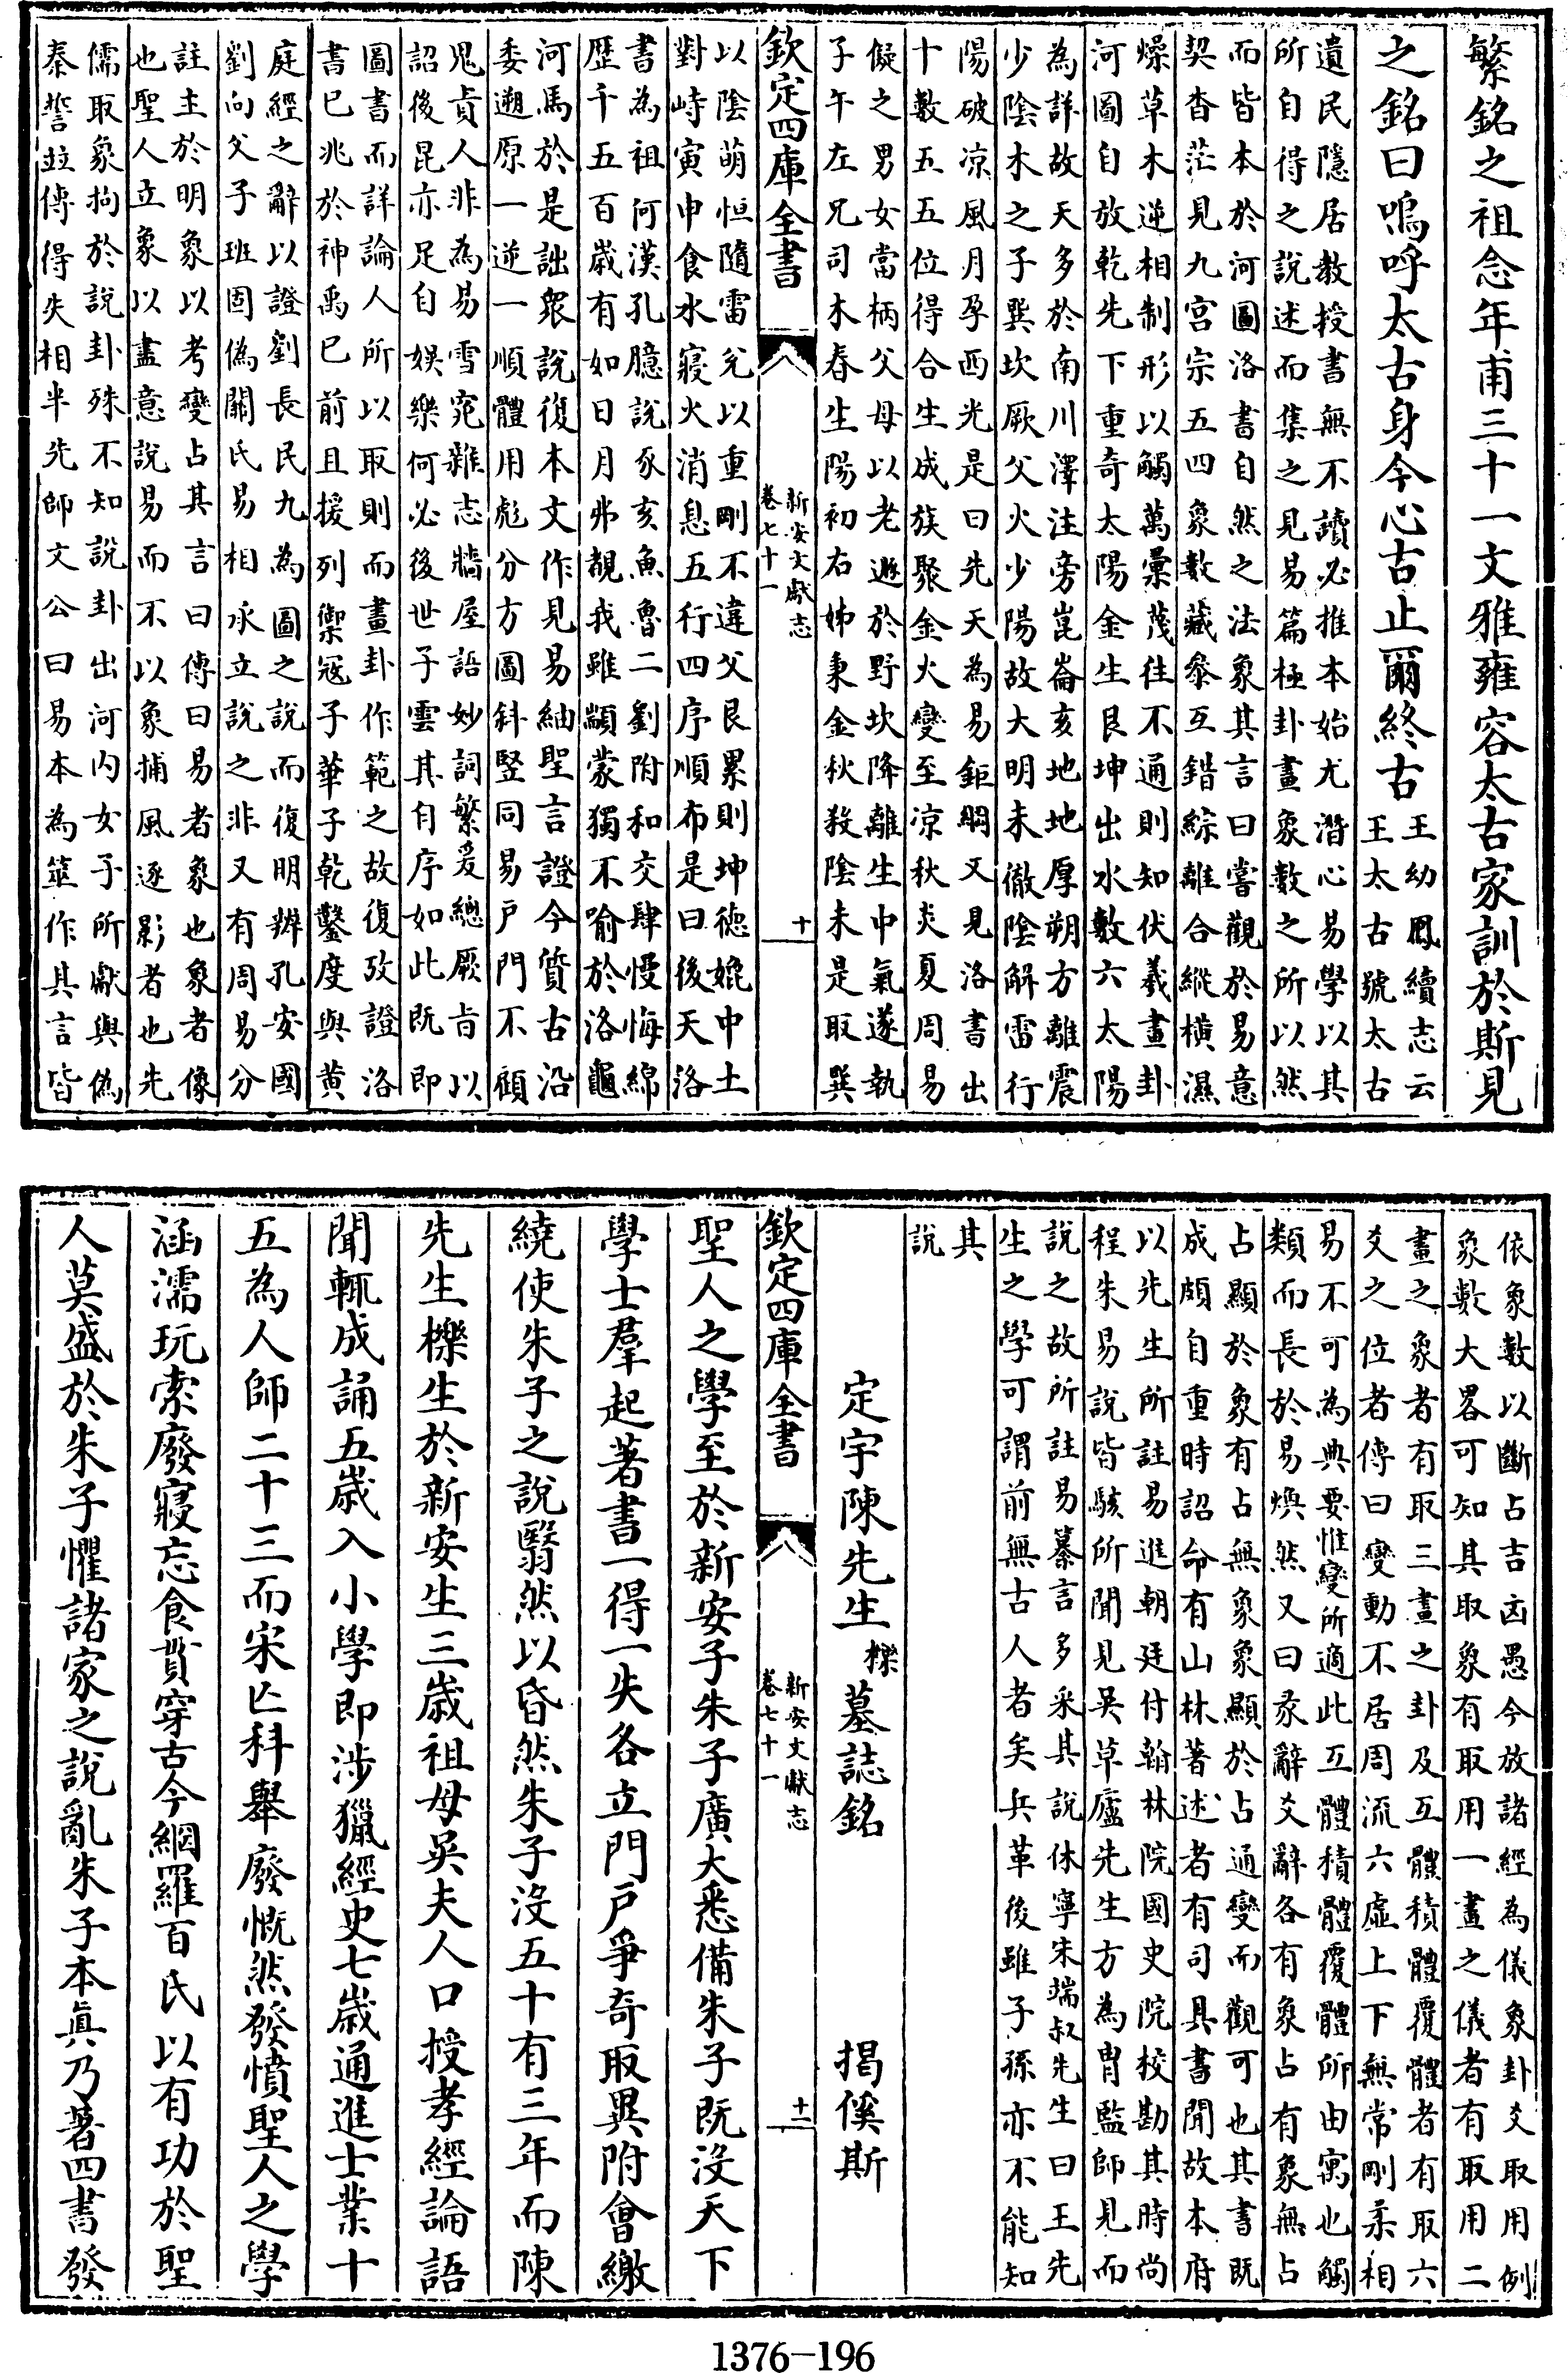 繁銘之祖念年甫三十一文雅雍容太古家訓於斯見
之銘曰嗚呼太古身今心古止爾終古王幼鳳續志云
王太古號太古
遺民隱居教授書無不讀必推本始尤潛心易學以其
所自得之說述而集之見易篇極卦畫象數之所以然
而皆本於河圖洛書自然之法象其言曰嘗觀於易意
契杳茫見九宮宗五四象數藏叅互錯綜離合縱橫濕
燥草木逆相制形以觸萬彙茂往不通則知伏羲畫卦
河圖自放乾先下重奇太陽金生艮坤出水數六太陽
為詳故天多於南川澤注旁崑崙亥地地厚朔方離震
少陰木之子巽坎厥父火少陽故大明未徹陰解雷行
陽破凉風月孕西光是曰先天為易鉅綱又見洛書出
十數五五位得合生成族聚金火變至凉秋炎夏周易
儗之男女當柄父母以老遯於野坎降離生中氣遂執
子午左兄司木春生陽初右姊秉金秋殺陰末是取巽
欽定四庫全書
新安文獻志
卷七十一
十
以陰萌恒隨雷兌以重剛不違父艮累則坤德媲中土
對峙寅申食水寢火消息五行四序順布是曰後天洛
書為祖何漢孔臆說豕亥魚魯二劉附和交肆慢悔綿
歷千五百歲有如日月弗覩我雖顓蒙獨不喻於洛龜
河馬於是詘眾說復本文作見易紬聖言證今質古沿
委遡原一逆一順體用彪分方圖斜豎同易戶門不顧
鬼責人非為易雪寃雜志牆屋語妙詞繁爰總厥旨以
詔後昆亦足自娛樂何必後世子雲其自序如此既即
圖書而詳論人所以取則而畫卦作範之故復攷證洛
書已兆於神禹已前且援列禦冦子華子乾鑿度與黄
庭經之辭以證劉長民九為圖之說而復明辨孔安國
劉向父子班固偽關氏易相承立說之非又有周易分
註主於明象以考變占其言曰傳曰易者象也象者像
也聖人立象以盡意說易而不以象捕風逐影者也先
儒取象拘於說卦殊不知說卦出河内女子所獻與偽
秦誓並傳得失相半先師文公曰易本為筮作其言皆
依象數以斷占吉凶愚今放諸經為儀象卦爻取用例
象數大畧可知其取象有取用一畫之儀者有取用二
畫之象者有取三畫之卦及互體積體覆體者有取六
爻之位者傳曰變動不居周流六虛上下無常剛柔相
易不可為典要惟變所適此互體積體覆體所由寓也觸
類而長於易煥然又曰彖辭爻辭各有象占有象無占
占顯於象有占無象象顯於占通變而觀可也其書既
成頗自重時詔命有山林著述者有司具書聞故本府
以先生所註易進朝廷付翰林院國史院校勘其時尚
程朱易說皆駭所聞見吳草廬先生方為胄監師見而
說之故所註易纂言多采其說休寧朱端叔先生曰王先
生之學可謂前無古人者矣兵革後雖子孫亦不能知
其
說
定宇陳先生櫟墓誌銘　揭傒斯
欽定四庫全書
新安文獻志
卷七十一
十一
聖人之學至於新安子朱子廣大悉備朱子既沒天下
學士羣起著書一得一失各立門戶爭奇取異附會繳
繞使朱子之說翳然以昏然朱子沒五十有三年而陳
先生櫟生於新安生三歲祖母吳夫人口授孝經論語
聞輒成誦五歲入小學即涉獵經史七歲通進士業十
五為人師二十三而宋亡科舉廢慨然發憤聖人之學
涵濡玩索廢寢忘食貫穿古今網羅百氏以有功於聖
人莫盛於朱子懼諸家之說亂朱子本真乃著四書發
1376-196